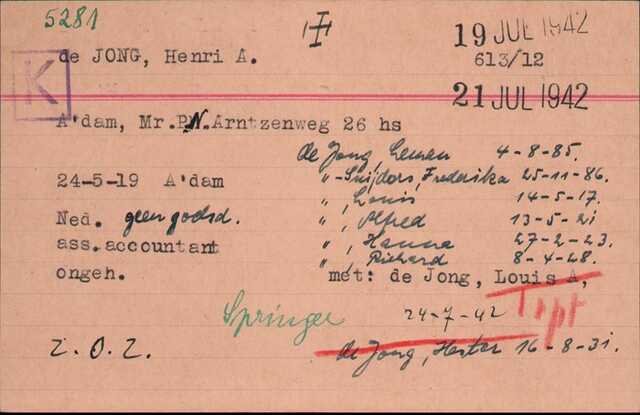 5281
19 JUL 1942
de JONG, Henri A.
613/12
K
21 JUL 1942
A'dam, Mr. P.N. Arntzenweg 26 hs
de Jong, Leman 4-8-85.
24-5-19 A'dam
" -Snijders, Frederika 25-11-86.
" , Louis 14-5-17.
Ned. geen godsd.
" , Alfred 13-5-21
ass. accountant
" , Hanna 27-2-23.
" , Richard 8-4-28.
ongeh.
met: de Jong, Louis A,
24-7-42
Springer
Z.O.Z.
de Jong, Hester 16-8-31.